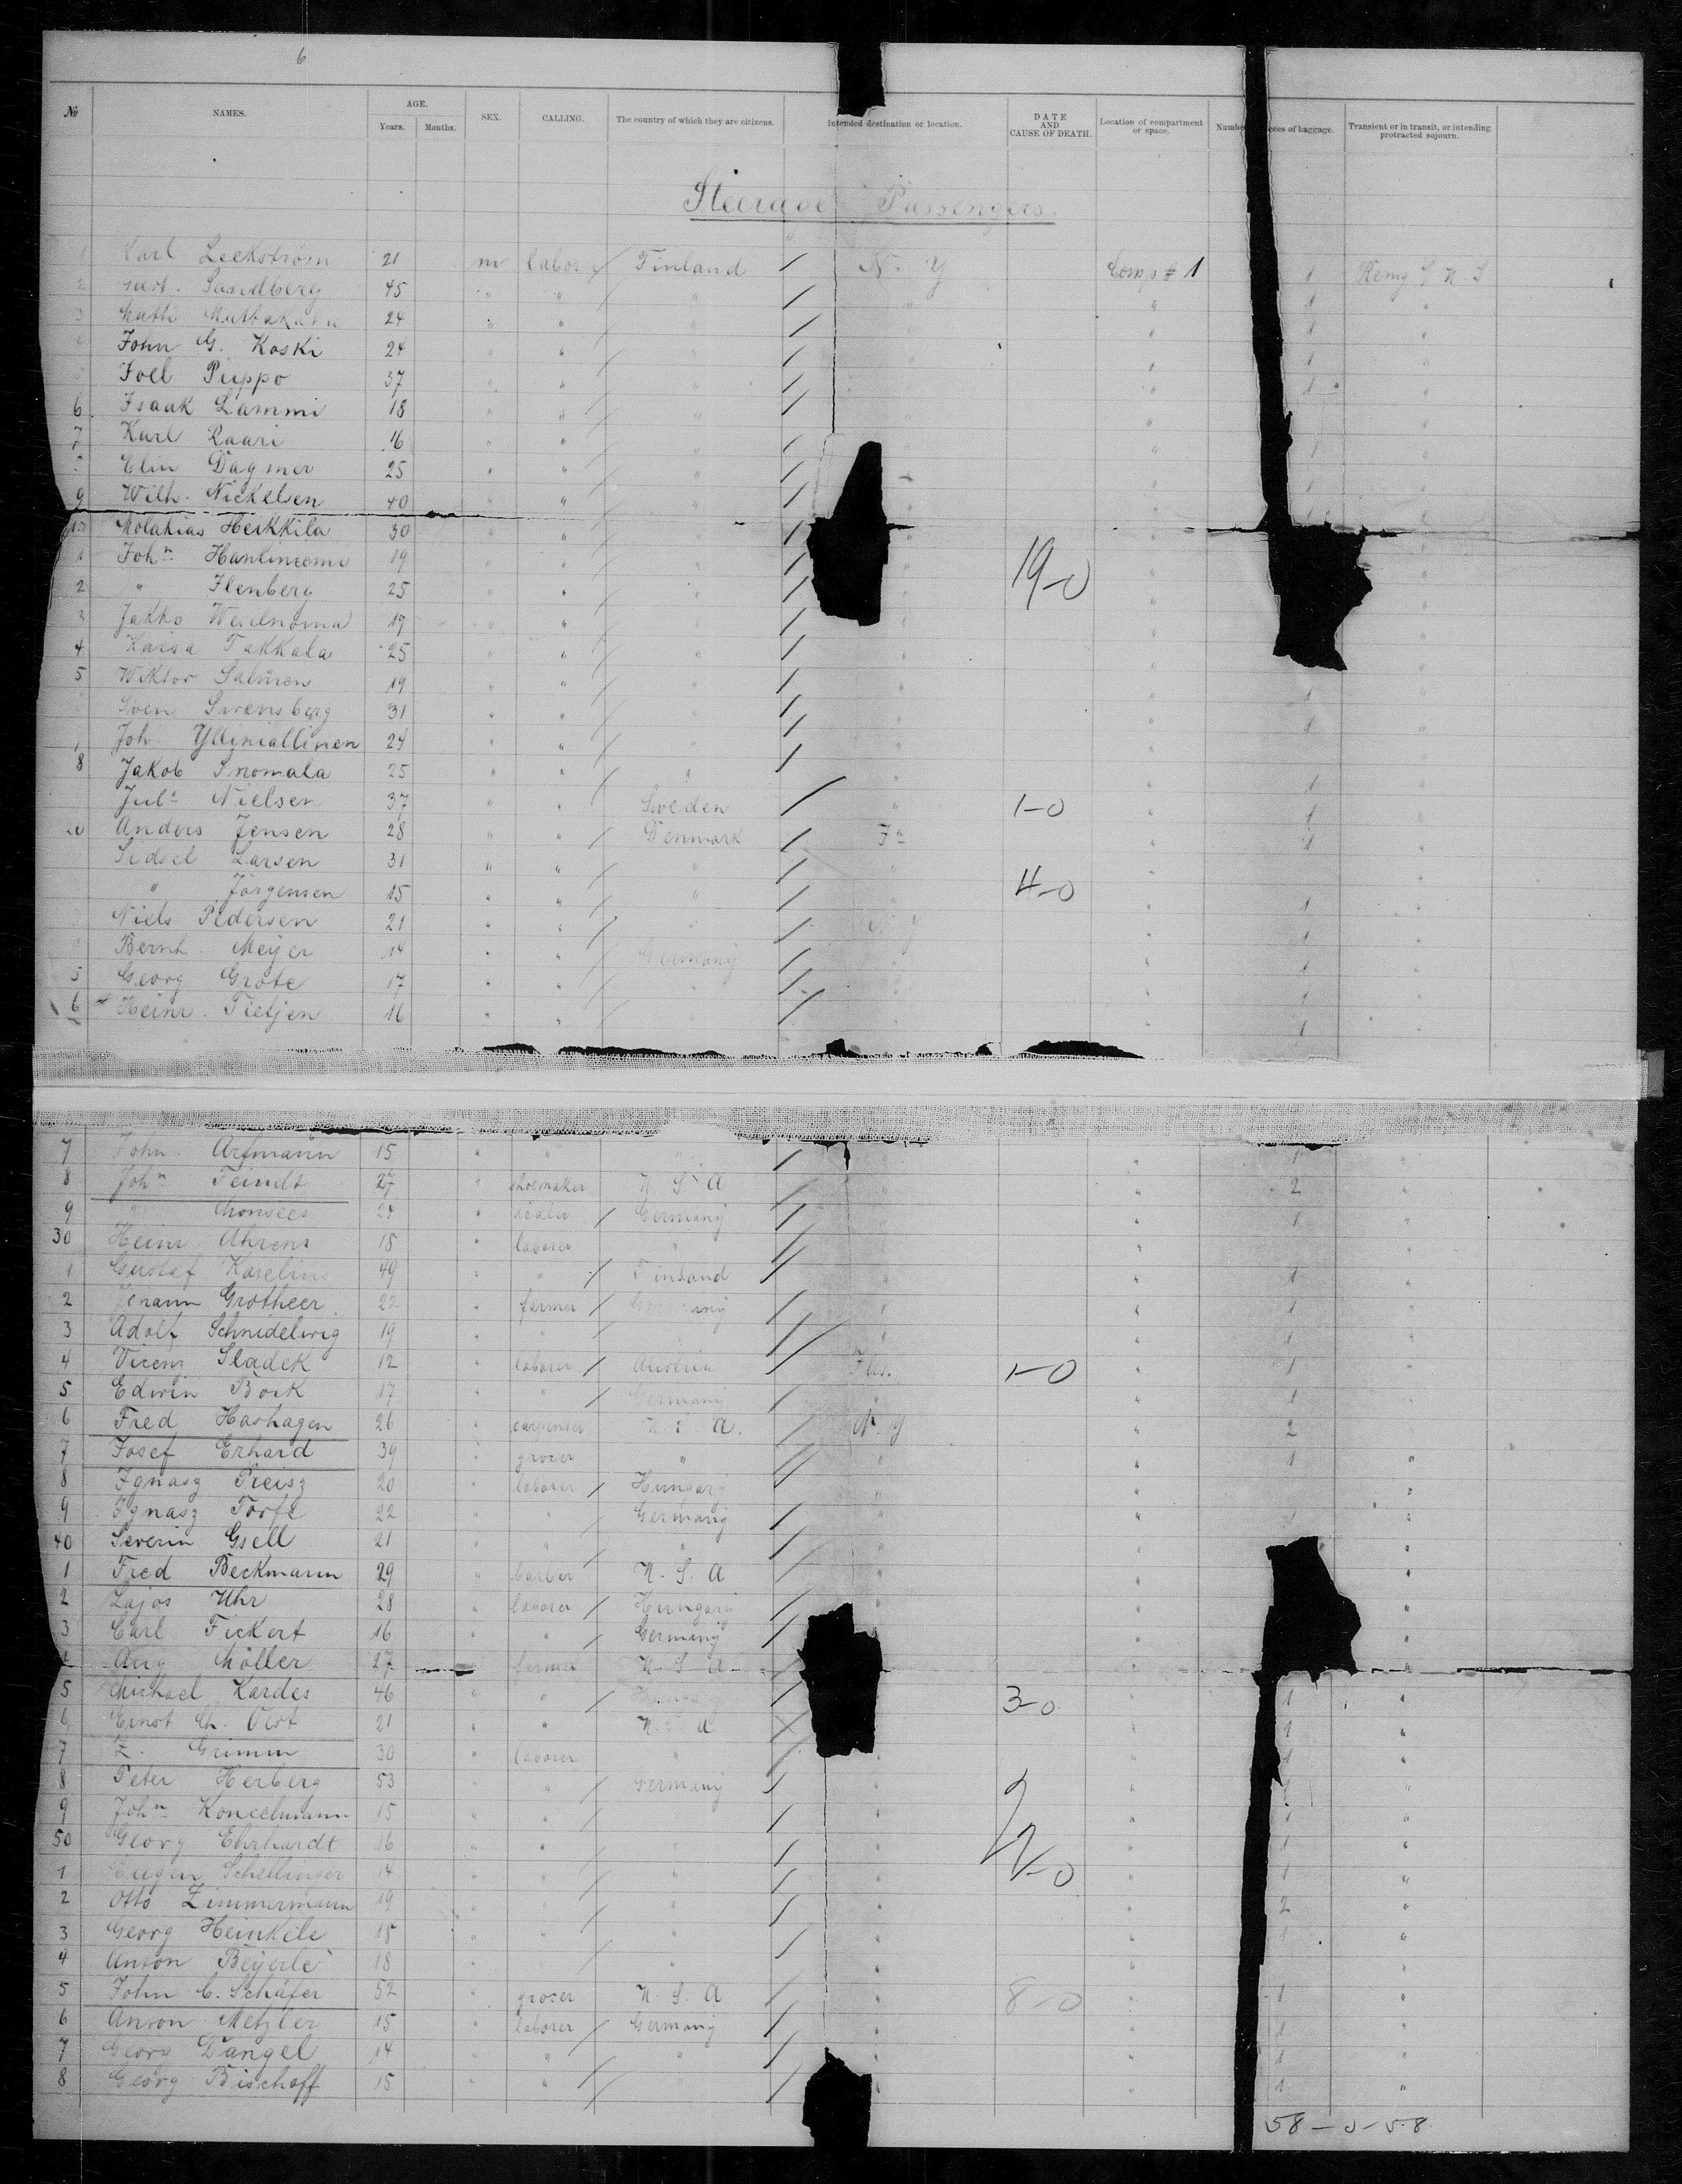 6
№ NAMES. AGE. Years. Months. SEX. CALLING. The country of which they are citizens. Intended destination or location. DATE AND CAUSE OF DEATH. Location of compartment or space. Number eces of baggage. Transient or in transit, or intending protracted sojourn.
Steerage Passengers.
1 Karl Leekström 21 m labor / Finland / N. Y Comp # 1 1
2 Gust. Sandberg 45 " " / " / " " 1 "
3 Matti 24 " " / " / " 1 "
4 John G. Koski 24 " " / " / " 1 "
Joel Puppo 37 " " / " / " 1 "
6 Isaak Lammi 18 " " / " / " " "
7 Karl Raari 16 " " / " / " 1 "
Elin Dagmer 25 " " / " / " " 1 "
9 Wilh. Nickelsen 40 " " / " / " "
10 Heikkila 30 " " / " / " "
1 Johⁿ 19 " " / " / " " "
2 " Ilenberg 25 " " / " / " 19-0 " "
3 Jakko 19 " " / " / " " "
4 Kaisa Takkala 25 " " / " / " " "
5 Wiktor Salmen 19 " " / " / " " 1 "
Sven Svensberg 31 " " / " / " " 1 "
Joh Yliniallinen 24 " " / " / " " "
8 Jakob 25 " " / " / " " 1 "
Nielsen 37 " " / Sweden / " 1-0 " 1 "
20 Anders Jensen 28 " " / Denmark / " 1 "
Sidsel Larsen 31 " " / " / " " "
" Jörgensen 15 " " / " / " 4-0 " 1 "
Niels Pedersen 21 " " / " / N Y " 1 "
Bernh. Meijer 14 " " / Germany / " 1 "
5 Georg Grote 17 " " / " / " 1 "
6 Heinr. Tietjen 16 " " / " / " 1 "
7 John Arfmann 15 " " " / " 1 "
8 Johⁿ Feindt 27 " shoemaker U S A / " " 2 "
9 " Monsees 24 " dealer / Germany / " " 1 "
30 Heinr. Ahrens 18 " laborer " / " "
1 Gustaf Karelius 49 " " / Finland / " " 1 "
2 Johann Grotheer 22 " farmer / Germany / " " 1 "
3 Adolf 19 " " / " / " " 1 "
4 Vicenz Sladek 12 " laborer / Austria / 1-0 " 1 "
5 Edwin Bock 17 " " / Germany / " " 1 "
6 Fred Hashagen 26 " carpenter U S A. / N. Y " 2 "
7 Josef Erhard 39 " grocer " / " " 1 "
8 Ignasz Preisz 20 " laborer / Hungary / " " "
9 Ignasz 22 " " Germany / " " 1 "
40 Severin Gsell 21 " " / " / " " "
1 Fred Beckmann 29 " barber U. S. A / " " "
2 Lajos Uhr 28 " laborer / Hungary / " " "
3 Carl Fickert 16 " " / Germany / " "
4 Aug Möller 27 " farmer U S A / " " "
5 Michael Kardes 46 " " / / " 3-0 " 1 "
6 Ernst 21 " " U. S A / " " 1 "
7 Z. Grimm 30 " laborer " / " " 1 "
8 Peter Herberg 53 " " / Germany / " " 1 "
9 Johⁿ 15 " " / " / " " 1 "
50 Georg Ehrhardt 16 " " / " / " " 1 "
1 Eugen Schellinger 14 " " / " / " " 1 "
2 Otto Zimmermann 19 " " / " / " " 2 "
3 Georg Heinkele 18 " " / " / " " 1 "
4 Anton Beyerle 18 " " / " " " "
5 John C. Schäfer 52 " grocer U. S. A / " 8-0 " 1 "
6 Anton Metzler 15 " laborer / Germany / " " 1 "
7 Georg Dangel 14 " " / " / " " 1 "
8 Georg Bischoff 15 " " / " / " " 1 "
58-0-58